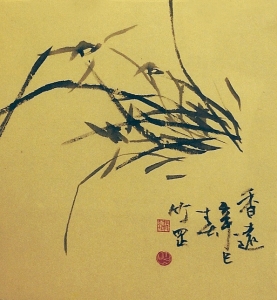 香遠
辛巳
春
竹罡